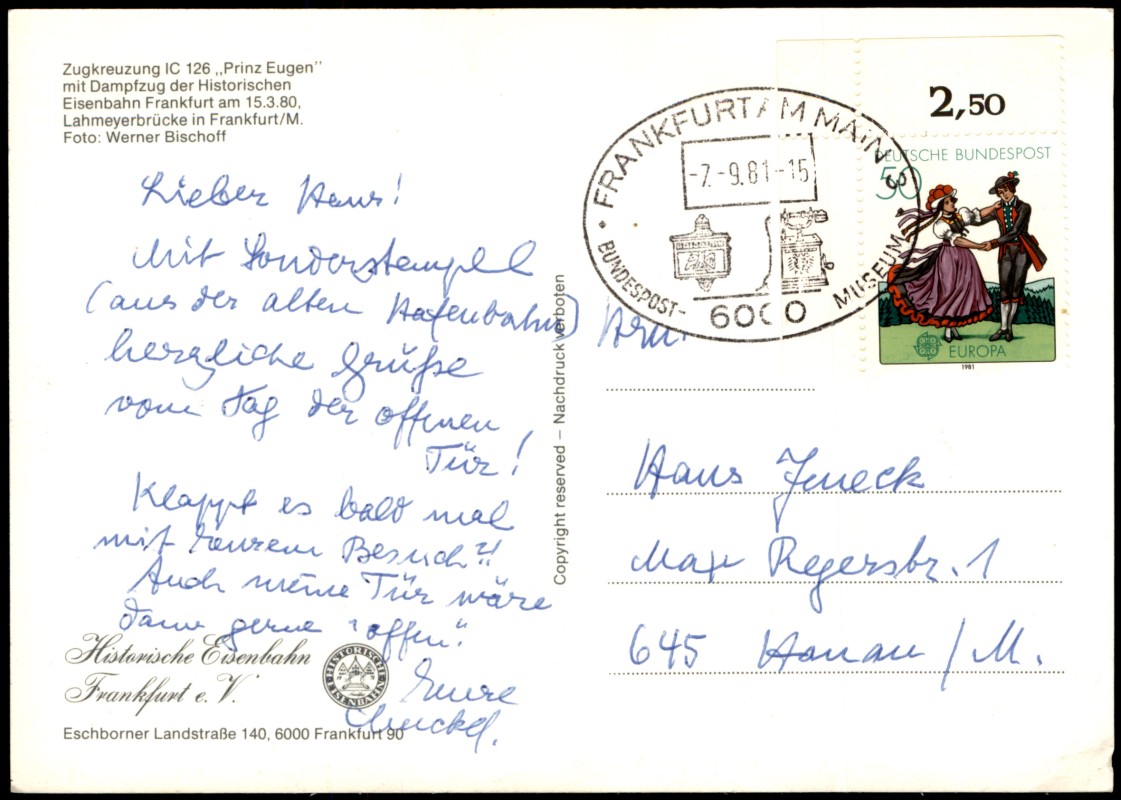 Zugkreuzung IC 126 „Prinz Eugen"
mit Dampfzug der Historischen
Eisenbahn Frankfurt am 15.3.80,
Lahmeyerbrücke in Frankfurt/M.
Foto: Werner Bischoff
Lieber Hans!
Mit Sonderstempel
(aus der alten Hafenbahn)
herzliche Grüße
vom Tag der offenen
Tür!
Klappt es bald mal
mit Eurem Besuch?!
Auch meine Tür wäre
dann gerne "offen".
Eure
Historische Eisenbahn
Frankfurt e. V.
HISTORISCHE EISENBAHN
Eschborner Landstraße 140, 6000 Frankfurt 90
Copyright reserved – Nachdruck verboten
FRANKFURT AM MAIN
-7.-9.81-15
BUNDESPOST-
MUSEUM
6000
2,50
DEUTSCHE BUNDESPOST
50
EUROPA
1981
Hrn.
Hans Jeneck
Max Regerstr. 1
645 Hanau/M.